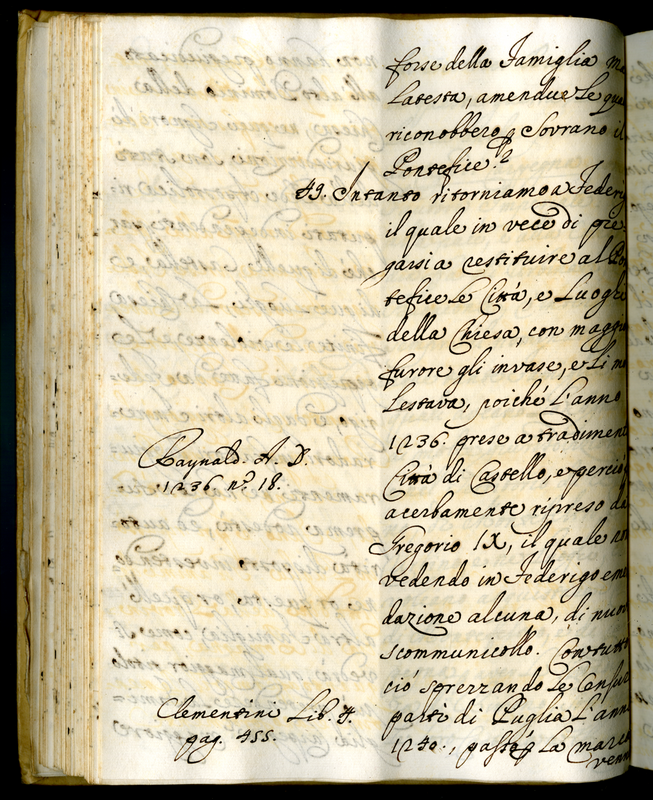 forse della Famiglia Ma
latesta, amendue le qua
riconobbero p Sovrano il
Pontefice.
49. Intanto ritorniamo a Federi
il quale in vece di pie
garsi a restituire al Po
tefice le Città, e Luoghi
della Chiesa, con maggi
furore gli invase, e li mo
lestava, poiché l'anno
1236. prese a tradiment
Città di Castello, e perciò
acerbamente ripreso da
Gregorio IX, il quale non
vedendo in Federigo eme
dazione alcuna, di nuov
scommunicollo. Con tutto
ciò sprezzando le Censur
partì di Puglia l'anno
1240., passò p la Marca
venne
Raynald. A. D.
1236. nº 18.
Clementini Lib. 4.
pag. 455.